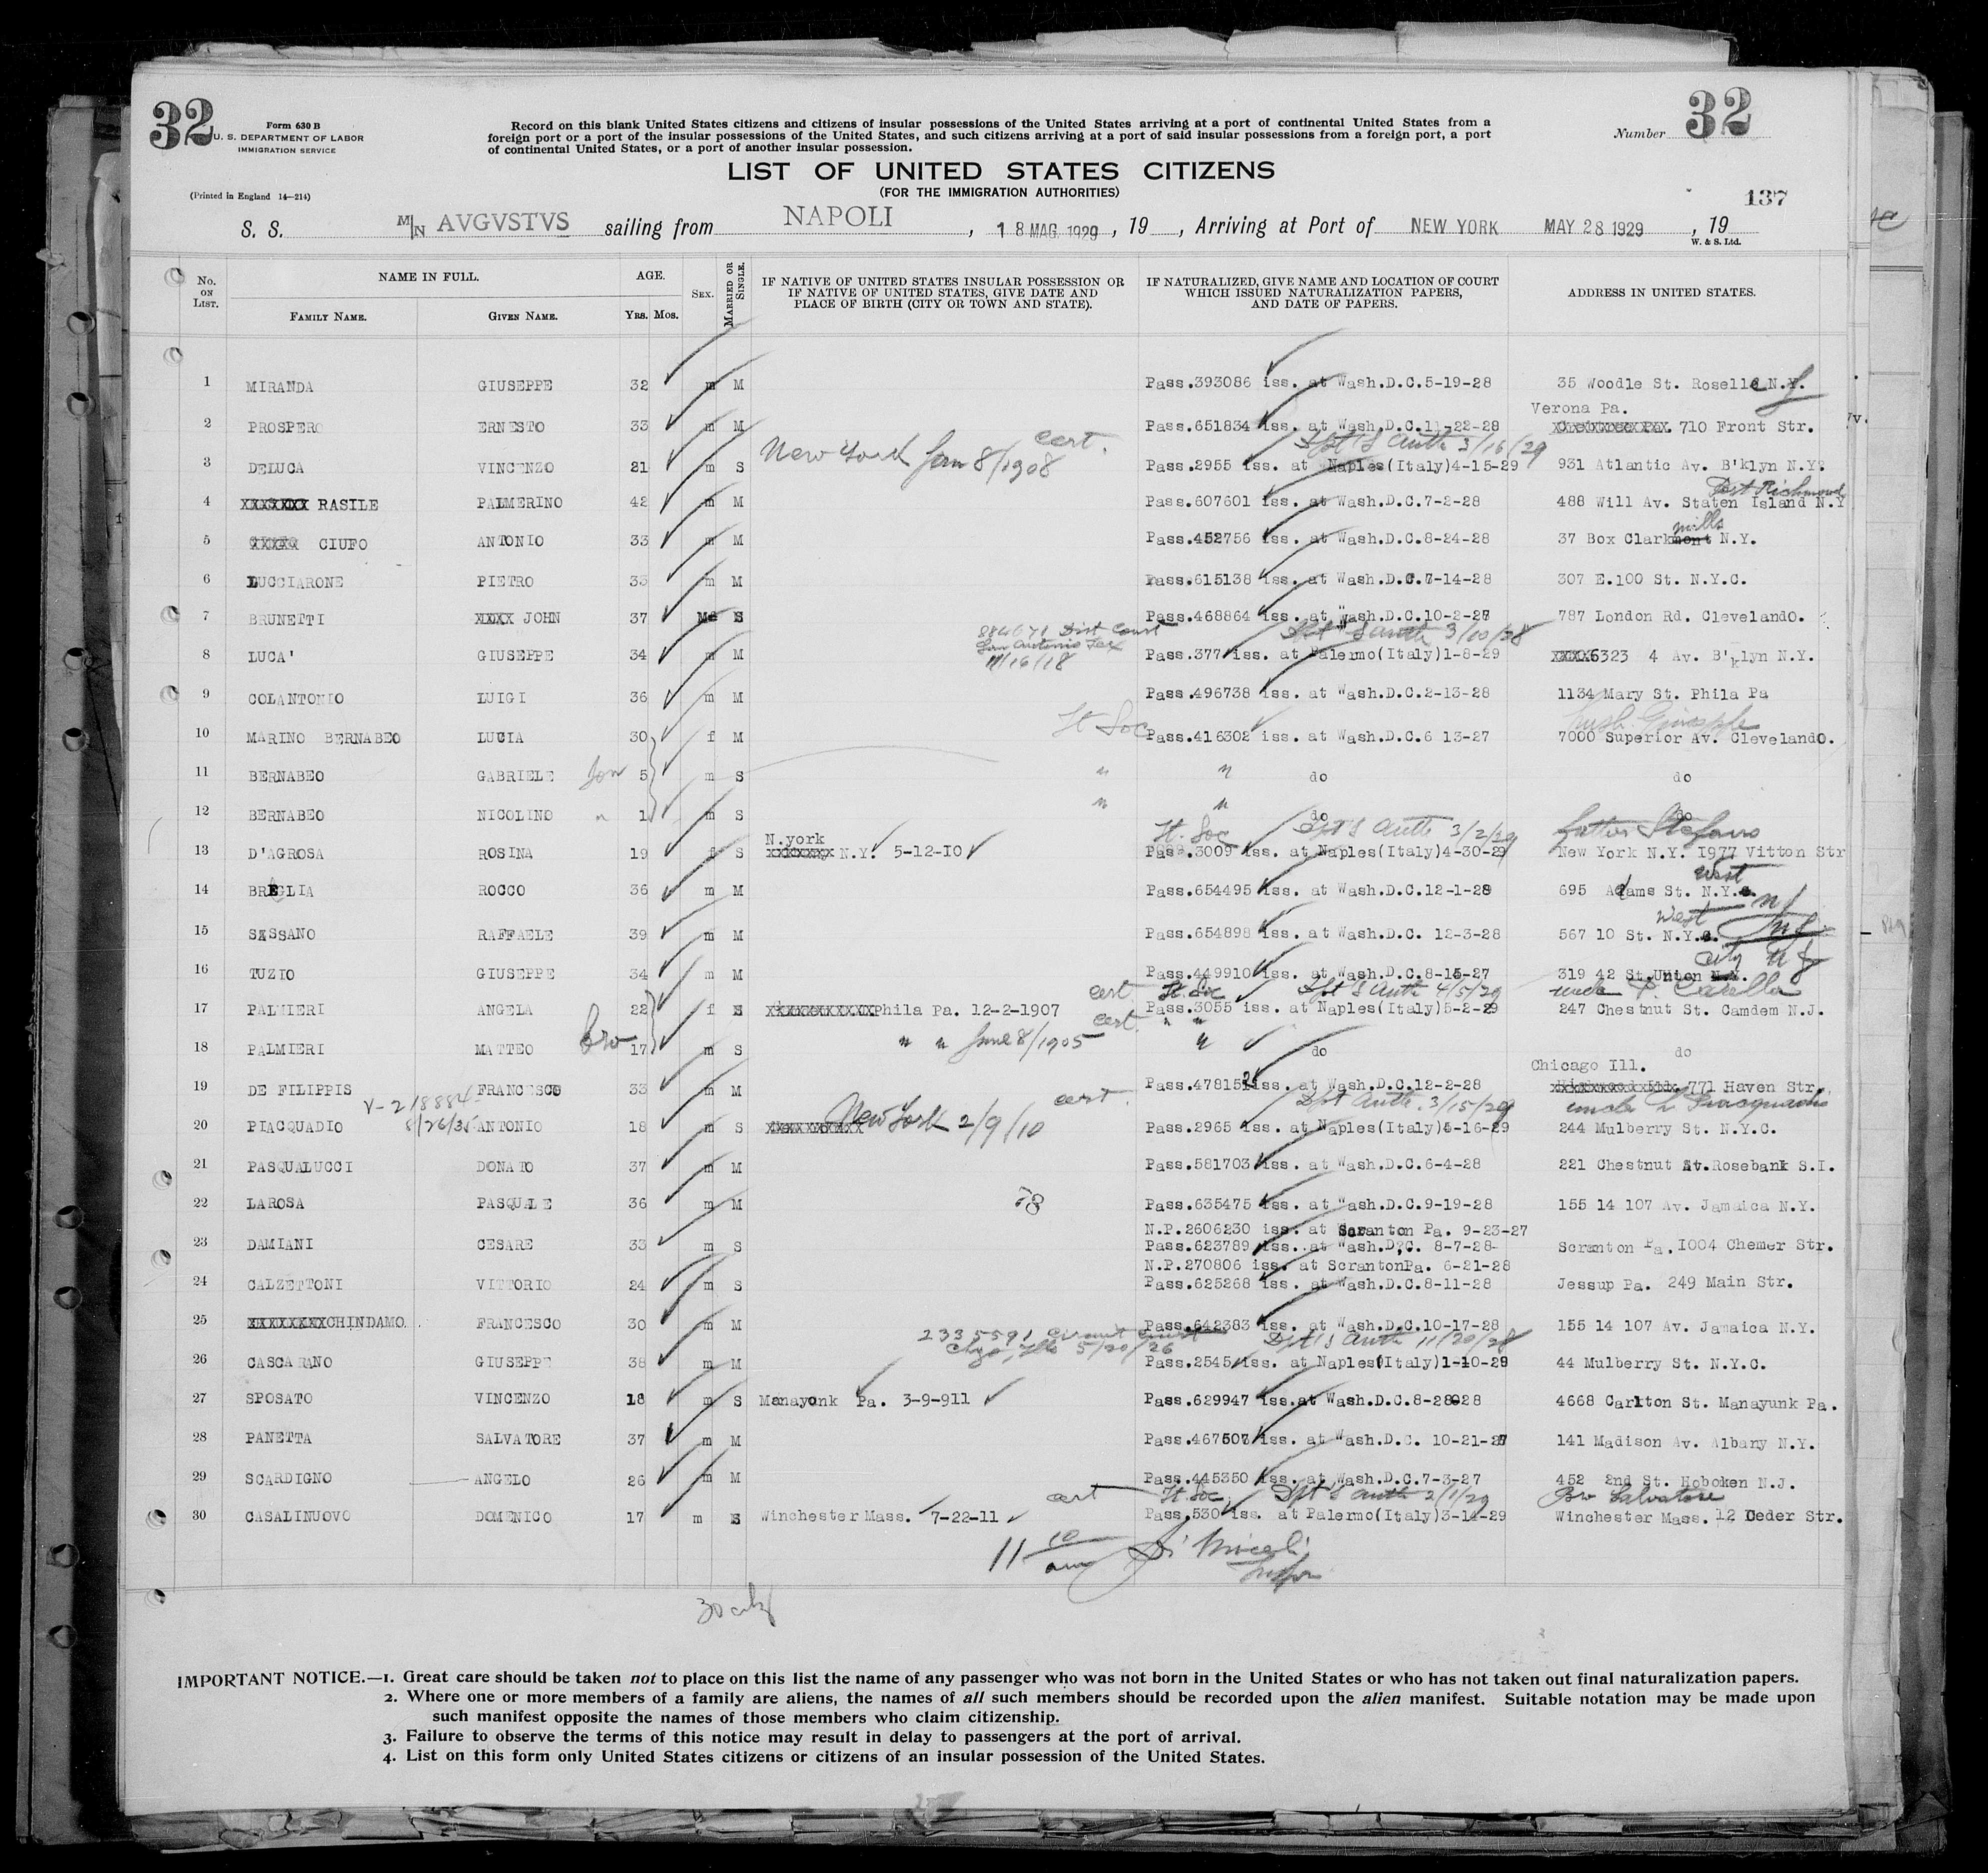 32
Form 630 B
U. S. DEPARTMENT OF LABOR
IMMIGRATION SERVICE
(Printed in England 14—214)
Record on this blank United States citizens and citizens of insular possessions of the United States arriving at a port of continental United States from a
foreign port or a port of the insular possessions of the United States, and such citizens arriving at a port of said insular possessions from a foreign port, a port
of continental United States, or a port of another insular possession.
Number 32
LIST OF UNITED STATES CITIZENS
(FOR THE IMMIGRATION AUTHORITIES)
137
S. S. M/N AVGVSTVS sailing from NAPOLI , 18 MAG. 1929 , 19 , Arriving at Port of NEW YORK MAY 28 1929 , 19
W. & S. Ltd.
No. ON LIST. NAME IN FULL. AGE. SEX. MARRIED OR SINGLE. IF NATIVE OF UNITED STATES INSULAR POSSESSION OR IF NATIVE OF UNITED STATES, GIVE DATE AND PLACE OF BIRTH (CITY OR TOWN AND STATE). IF NATURALIZED, GIVE NAME AND LOCATION OF COURT WHICH ISSUED NATURALIZATION PAPERS, AND DATE OF PAPERS. ADDRESS IN UNITED STATES.
FAMILY NAME. GIVEN NAME. YRS. MOS.
1 MIRANDA GIUSEPPE 32 m M Pass.393086 iss. at Wash.D.C.5-19-28 35 Woodle St. Roselle N.Y. J
Verona Pa.
2 PROSPERO ERNESTO 33 m M Pass.651834 iss. at Wash.D.C.11-22-28 710 Front Str.
New York Jan 8/1908 cert. Dpt S Auth 3/16/29
3 DELUCA VINCENZO 21 m S Pass.2955 iss. at Naples(Italy)4-15-29 931 Atlantic Av. B'klyn N.Y.
Port Richmond
4 XXXXXXX RASILE PALMERINO 42 m M Pass.607601 iss. at Wash.D.C.7-2-28 488 Will Av. Staten Island N.Y
mills
5 XXXXX CIUFO ANTONIO 33 m M Pass.452756 iss. at Wash.D.C.8-24-28 37 Box Clarkmont N.Y.
6 LUCCIARONE PIETRO 33 m M Pass.615138 iss. at Wash.D.C.7-14-28 307 E.100 St. N.Y.C.
7 BRUNETTI XXXX JOHN 37 Md S Pass.468864 iss. at Wash.D.C.10-2-28 787 London Rd. ClevelandO.
884671 Dist Court San Antonio Tex 11/16/18 Dpt S auth 3/10/28
8 LUCA' GIUSEPPE 34 m M Pass.377 iss. at Palermo(Italy)1-8-29 XXXX6323 4 Av. B'klyn N.Y.
9 COLANTONIO LUIGI 36 m M Pass.496738 iss. at Wash.D.C.2-13-28 1134 Mary St. Phila Pa
It Soc Husb. Giuseppe
10 MARINO BERNABEO LUCIA 30 f M Pass.416302 iss. at Wash.D.C.6 13-27 7000 Superior Av. ClevelandO.
11 BERNABEO GABRIELE Son 5 m S " " do do
12 BERNABEO NICOLINO " 1 m S " " do do
N.york It. Soc Dpt S Auth 3/2/29 father Stefano
13 D'AGROSA ROSINA 19 f S XXXXXXX N.Y. 5-12-10 Pass.3009 iss. at Naples(Italy)4-30-29 New York N.Y. 1977 Vitton Str
West
14 BREGLIA ROCCO 36 m M Pass.654495 iss. at Wash.D.C.12-1-28 695 Adams St. N.Y. NJ
West
15 SASSANO RAFFAELE 39 m M Pass.654898 iss. at Wash.D.C. 12-3-28 567 10 St. N.Y. NJ
City N J
16 TUZIO GIUSEPPE 34 m M Pass.449910 iss. at Wash.D.C.8-15-27 319 42 St.Union N.Y.
cert It. Soc Dpt S Auth 4/5/29 uncle P. Carella
17 PALMIERI ANGELA 22 f S XXXXXXXXXXX Phila Pa. 12-2-1907 Pass.3055 iss. at Naples(Italy)5-2-29 247 Chestnut St. Camdem N.J.
cert. " "
18 PALMIERI MATTEO bro 17 m S " " June 8/1905 " do do
Chicago Ill.
19 DE FILIPPIS FRANCESCO 33 m M Pass.478152 iss. at Wash.D.C.12-2-28 771 Haven Str.
V-218884 8/26/35 New York 2/9/10 cert. Dpt Auth. 3/15/29 uncle L Piacquadio
20 PIACQUADIO ANTONIO 18 m S XXXXXXXXXX Pass.2965 iss. at Naples(Italy)4-16-29 244 Mulberry St. N.Y.C.
21 PASQUALUCCI DONATO 37 m M Pass.581703 iss. at Wash.D.C.6-4-28 221 Chestnut Av.Rosebank S.I.
22 LAROSA PASQUALE 36 m M Pass.635475 iss. at Wash.D.C.9-19-28 155 14 107 Av. Jamaica N.Y.
N.P.2606230 iss. at Scranton Pa. 9-23-27
23 DAMIANI CESARE 33 m S Pass.623789 iss. at Wash.D.C. 8-7-28- Scranton Pa. 1004 Chemer Str.
N.P.270806 iss. at ScrantonPa. 6-21-28
24 CALZETTONI VITTORIO 24 m S Pass.625268 iss. at Wash.D.C.8-11-28 Jessup Pa. 249 Main Str.
25 XXXXXXXX CHINDAMO FRANCESCO 30 m M Pass.642383 iss. at Wash.D.C.10-17-28 155 14 107 Av. Jamaica N.Y.
2335591 Circuit Court Chgo, Ills 5/20/26 Dpt S Auth 11/20/28
26 CASCARANO GIUSEPPE 38 m M Pass.2545 iss. at Naples(Italy)1-10-29 44 Mulberry St. N.Y.C.
27 SPOSATO VINCENZO 18 m S Manayonk Pa. 3-9-911 Pass.629947 iss.at Wash.D.C.8-28-28 4668 Carlton St. Manayunk Pa.
28 PANETTA SALVATORE 37 m M Pass.467507 iss. at Wash.D.C. 10-21-27 141 Madison Av. Albany N.Y.
29 SCARDIGNO ANGELO 26 m M Pass.445350 iss. at Wash.D.C.7-3-27 452 2nd St. Hoboken N.J.
cert It. Soc. Dpt S Auth 2/1/29 Bro Salvatore
30 CASALINUOVO DOMENICO 17 m S Winchester Mass. 7-22-11 Pass.530 iss. at Palermo(Italy)3-14-29 Winchester Mass. 12 Ceder Str.
11 10 am
30
IMPORTANT NOTICE.—1. Great care should be taken not to place on this list the name of any passenger who was not born in the United States or who has not taken out final naturalization papers.
2. Where one or more members of a family are aliens, the names of all such members should be recorded upon the alien manifest. Suitable notation may be made upon
such manifest opposite the names of those members who claim citizenship.
3. Failure to observe the terms of this notice may result in delay to passengers at the port of arrival.
4. List on this form only United States citizens or citizens of an insular possession of the United States.